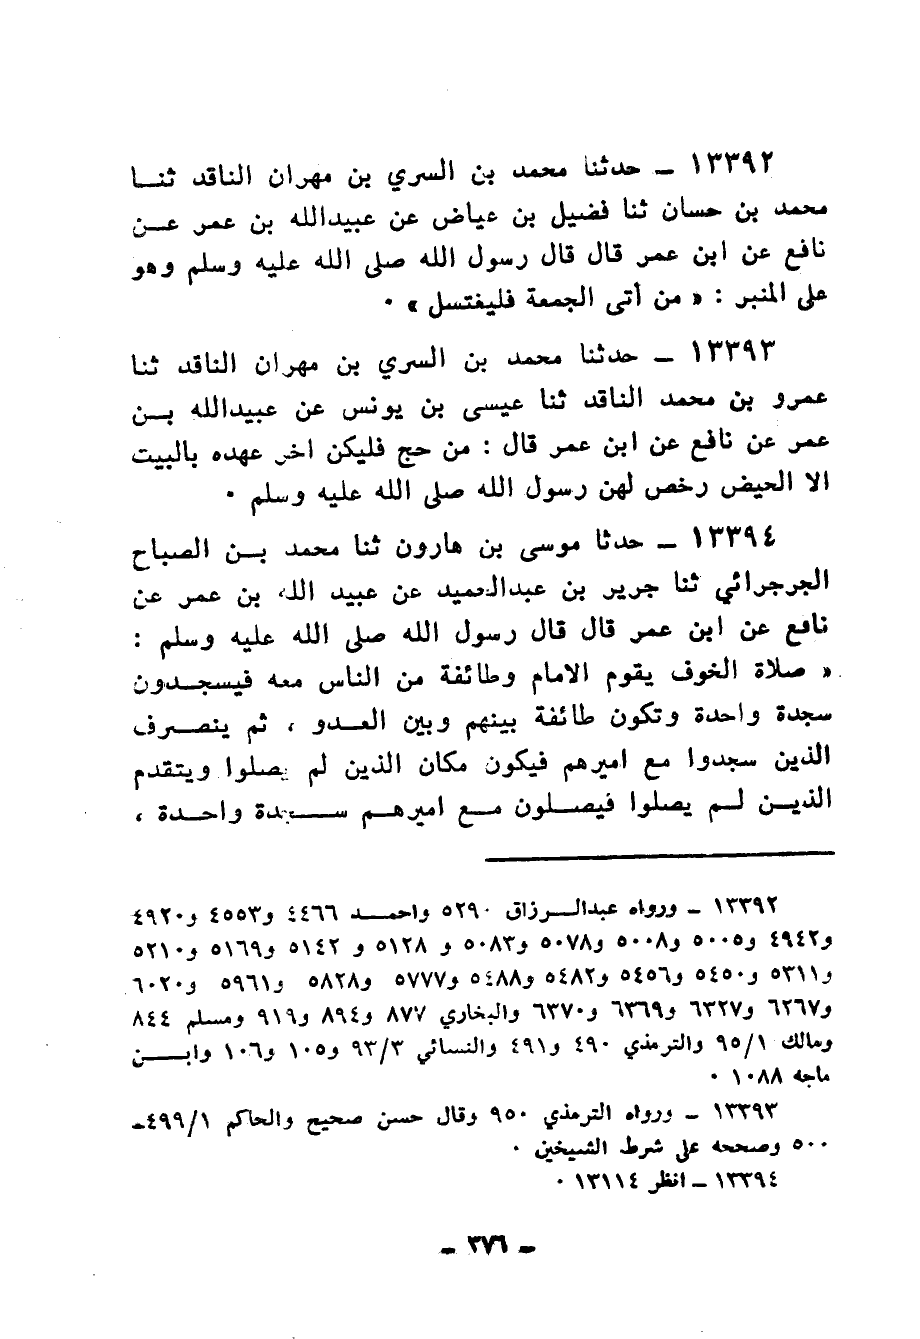 ١٣٣٩٢ ــ حدثنا محمد بن السري بن مهران الناقد ثنــا
محمد بن حسان ثنا فضيل بن عياض عن عبيدالله بن عمر عــن
نافع عن ابن عمر قال قال رسول الله صلى الله عليه وسلم وهو
على المنبر : « من أتى الجمعة فليغتسل » ٠
١٣٣٩٣ ــ حدثنا محمد بن السري بن مهران الناقد ثنا
عمرو بن محمد الناقد ثنا عيسى بن يونس عن عبيدالله بــن
عمر عن نافع عن ابن عمر قال : من حج فليكن اخر عهده بالبيت
الا الحيض رخص لهن رسول الله صلى الله عليه وسلم ٠
١٣٣٩٤ ــ حدثا موسى بن هارون ثنا محمد بــن الصباح
الجرجرائي ثنا جرير بن عبدالحميد عن عبيد الله بن عمر عن
نافع عن ابن عمر قال قال رسول الله صلى الله عليه وسلم :
« صلاة الخوف يقوم الامام وطائفة من الناس معه فيسجــدون
سجدة واحدة وتكون طائفة بينهم وبين العــدو ، ثم ينصــرف
الذين سجدوا مع اميرهم فيكون مكان الذين لم يصلوا ويتقدم
الذيــن لــم يصلوا فيصلــون مــع اميرهــم ســـجدة واحــدة ،
١٣٣٩٢ ــ ورواه عبدالــرزاق ٥٢٩٠ واحمــد ٤٤٦٦ و٤٥٥٣ و٤٩٢٠
و٤٩٤٢ و٥٠٠٥ و٥٠٠٨ و٥٠٧٨ و٥٠٨٣ و ٥١٢٨ و ٥١٤٢ و٥١٦٩ و٥٢١٠
و٥٣١١ و٥٤٥٠ و٥٤٥٦ و٥٤٨٢ و٥٤٨٨ و٥٧٧٧ و٥٨٢٨ و٥٩٦١ و٦٠٢٠
و٦٢٦٧ و٦٣٢٧ و٦٣٦٩ و٦٣٧٠ والبخاري ٨٧٧ و٨٩٤ و٩١٩ ومسلم ٨٤٤
ومالك ٩٥/١ والترمذي ٤٩٠ و٤٩١ والنسائي ٩٣/٣ و١٠٥ و١٠٦ وابــن
ماجه ١٠٨٨ ٠
١٣٣٩٣ ــ ورواه الترمذي ٩٥٠ وقال حسن صحيح والحاكم ٤٩٩/١ــ
٥٠٠ وصححه على شرط الشيخين ٠
١٣٣٩٤ ــ انظر ١٣١١٤ ٠
ــ ٣٧٦ ــ